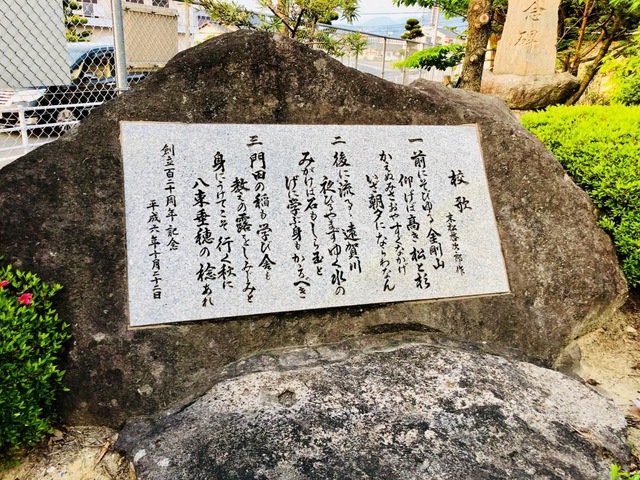 校歌
末松啓次郎作
一 前にそびゆる金剛山
仰げば高き松と杉
みさおやすぐなかげ
いざ朝夕にならわなん
二 後に流るゝ遠賀川
夜ひるやまずゆく水の
みがけば石もしら玉と
げに学ぶ身も
三 門田の稲も学び舎も
教えの露をしみじみと
身にうけてこそ行く秋に
八束垂穂の稔あれ
創立百二十周年記念
平成六年十月二十二日
念碑